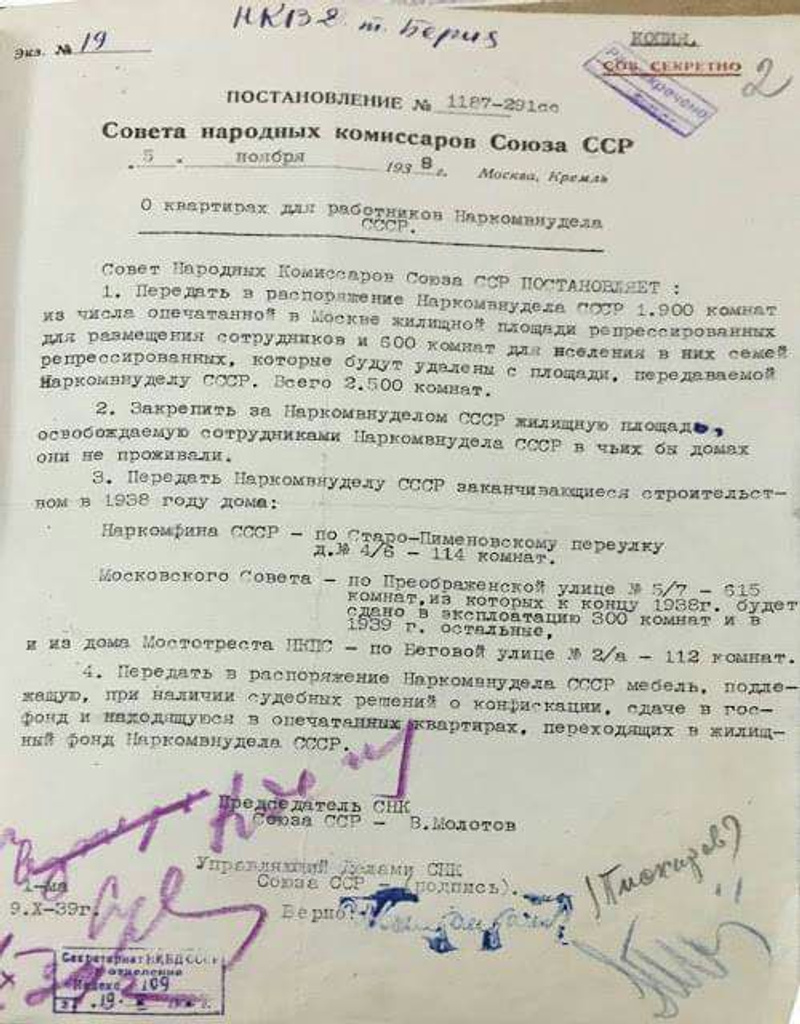 НКВД. т. Берия
Экз. № 19
КОПИЯ.
СОВ. СЕКРЕТНО
2
Рассекречено
ПОСТАНОВЛЕНИЕ № 1187-291сс
Совета народных комиссаров Союза ССР
"5" ноября 1938 г. Москва, Кремль
О квартирах для работников Наркомвнудела
СССР.
Совет Народных Комиссаров Союза ССР ПОСТАНОВЛЯЕТ :
1. Передать в распоряжение Наркомвнудела СССР 1.900 комнат
из числа опечатанной в Москве жилищной площади репрессированных
для размещения сотрудников и 600 комнат для вселения в них семей
репрессированных, которые будут удалены с площади, передаваемой
Наркомвнуделу СССР. Всего 2.500 комнат.
2. Закрепить за Наркомвнуделом СССР жилищную площадь,
освобождаемую сотрудниками Наркомвнудела СССР в чьих бы домах
они не проживали.
3. Передать Наркомвнуделу СССР заканчивающиеся строительст-
вом в 1938 году дома:
Наркомфина СССР - по Старо-Пименовскому переулку
д.№ 4/6 - 114 комнат.
Московского Совета - по Преображенской улице № 5/7 - 615
комнат,из которых к концу 1938г. будет
сдано в эксплоатацию 300 комнат и в
1939 г. остальные,
и из дома Мостотреста НКПС - по Беговой улице № 2/а - 112 комнат.
4. Передать в распоряжение Наркомвнудела СССР мебель, подле-
жащую, при наличии судебных решений о конфискации, сдаче в гос-
фонд и находящуюся в опечатанных квартирах, переходящих в жилищ-
ный фонд Наркомвнудела СССР.
Председатель СНК
Союза ССР - В.Молотов
Управляющий Делами СНК
Союза ССР - (подпись).
1-ма
9.X-39г.
Верно:
Секретариат НКВД СССР
отделение
Индекс 109
19